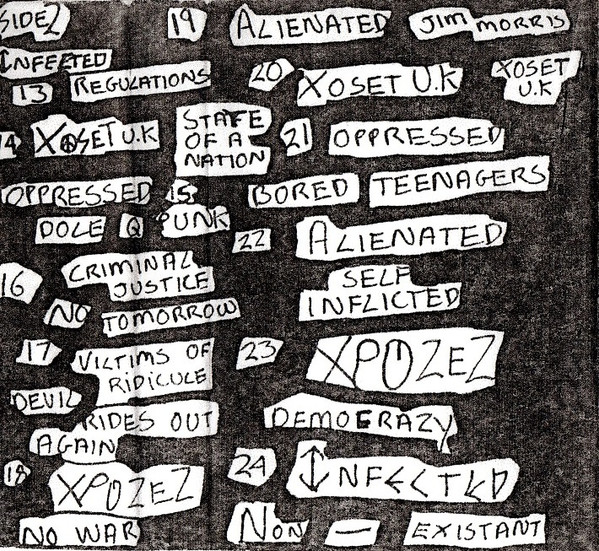 SIDE2
INFECTED
13 REGULATIONS
14 XOSET U.K STATE OF A NATION
OPPRESSED 15
DOLE Q PUNK
16 CRIMINAL JUSTICE
NO TOMORROW
17 VILTIMS OF RIDICULE
DEVIL RIDES OUT
AGAIN
18 XPOZEZ
NO WAR
19 ALIENATED JIM MORRIS
20 XOSET U.K XOSET U.K
21 OPPRESSED
BORED TEENAGERS
22 ALIENATED
SELF INFLICTED
23 XPOZEZ
DEMOCRAZY
24 INFECTED
NON — EXISTANT